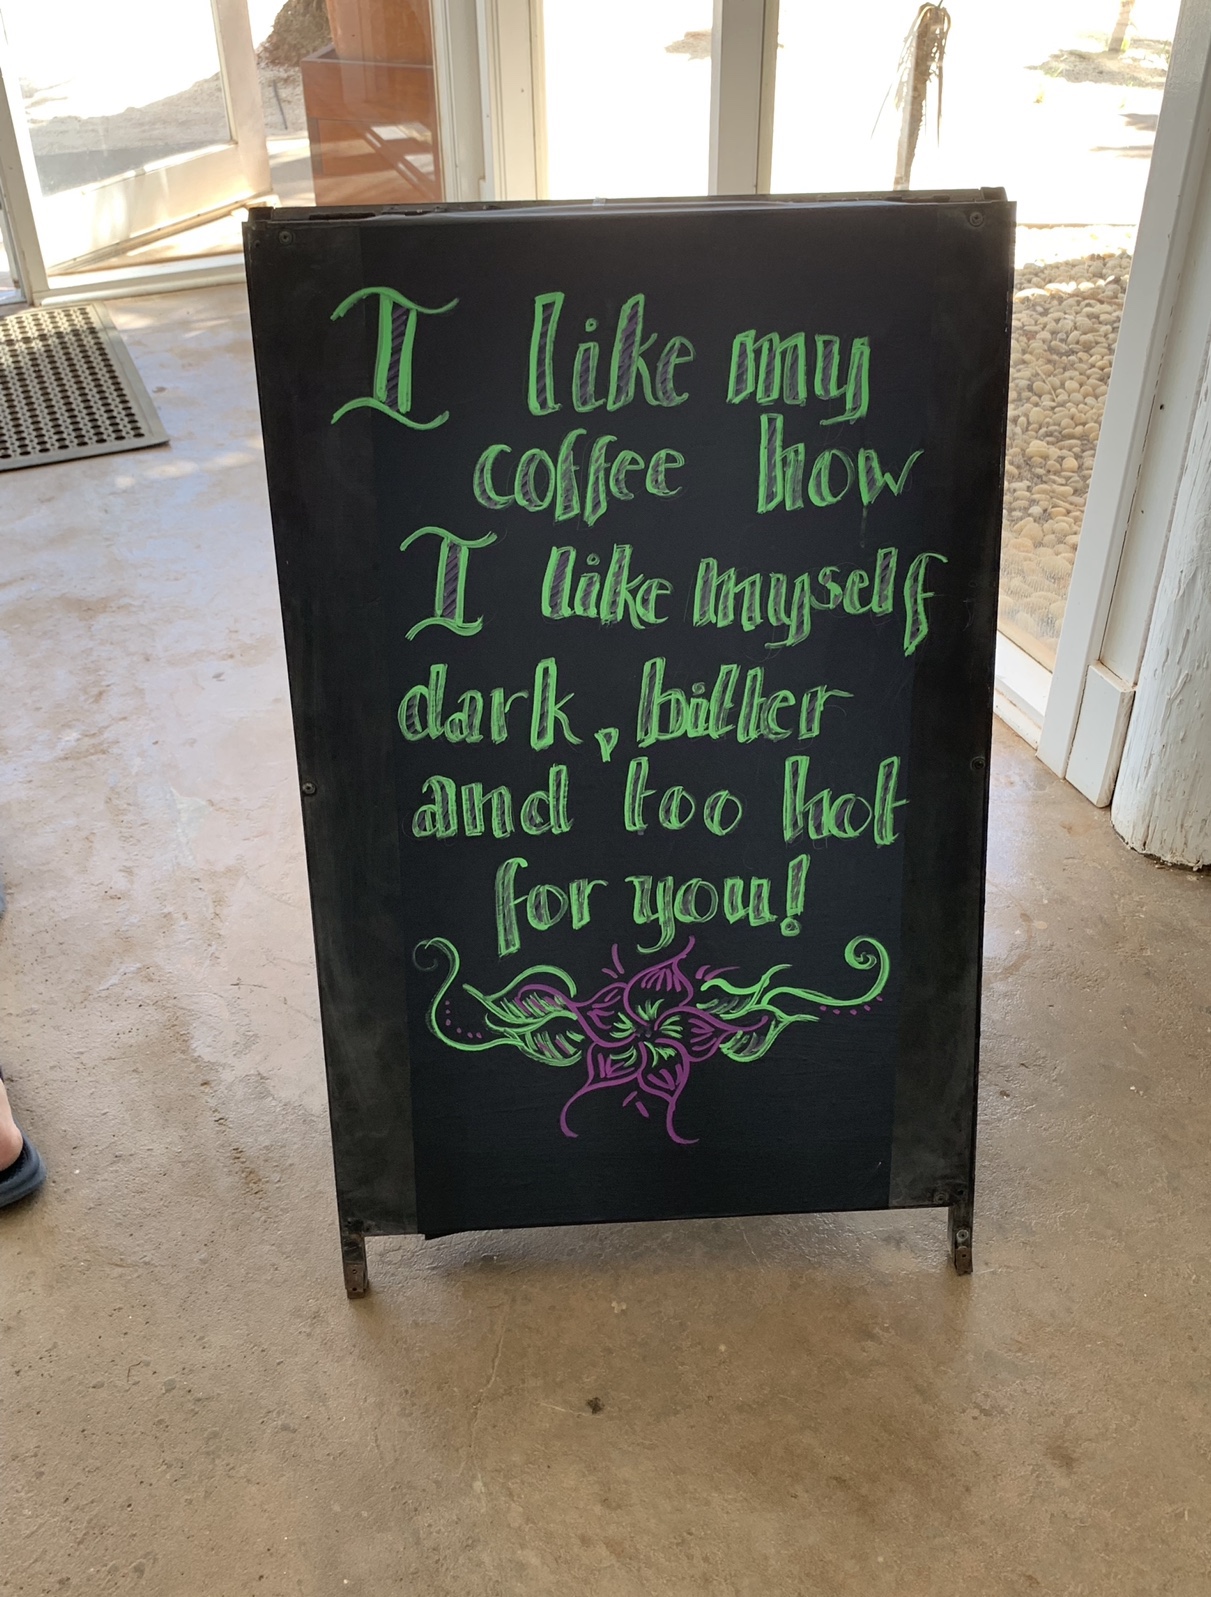 I like my
coffee how
I like myself
dark, bitter
and too hot
for you!